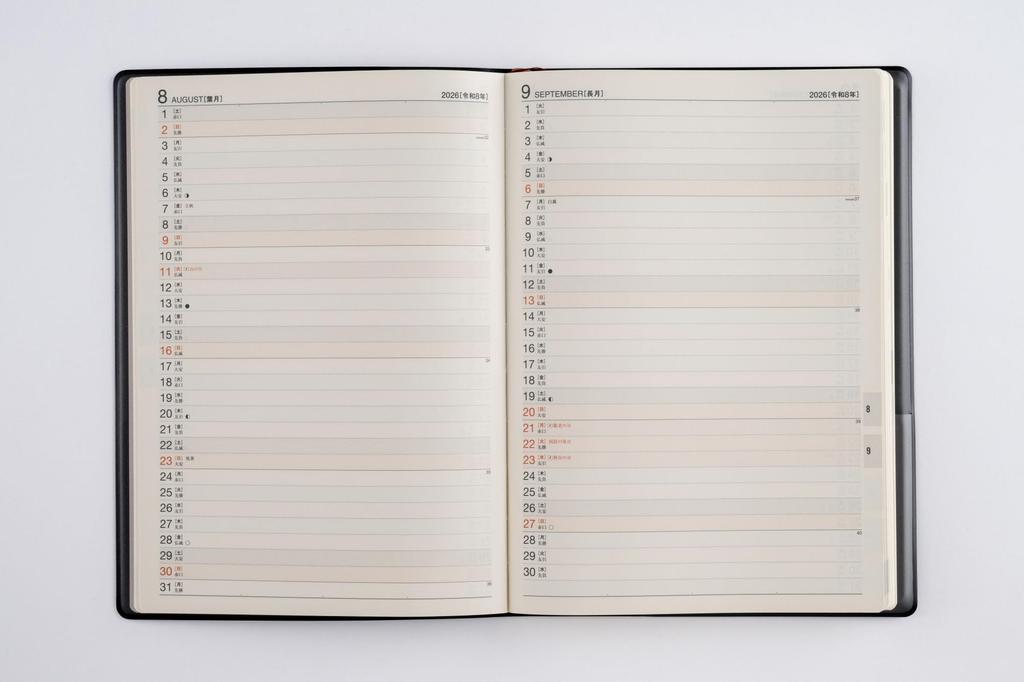 8 AUGUST[葉月] 2026[令和8年]
1 [土]
赤口
2 [日]
先勝
3 [月] 32
友引
4 [火]
先負
5 [水]
仏滅
6 [木]
大安
7 [金] 立秋
赤口
8 [土]
先勝
9 [日]
友引
10 [月] 33
先負
11 [火] 山の日
仏滅
12 [水]
大安
13 [木]
先勝
14 [金]
友引
15 [土]
先負
16 [日]
仏滅
17 [月] 34
大安
18 [火]
赤口
19 [水]
先勝
20 [木]
友引
21 [金]
先負
22 [土]
仏滅
23 [日] 処暑
大安
24 [月] 35
赤口
25 [火]
先勝
26 [水]
友引
27 [木]
先負
28 [金]
仏滅
29 [土]
大安
30 [日]
赤口
31 [月] 36
先勝
9 SEPTEMBER[長月] 2026[令和8年]
1 [火]
友引
2 [水]
先負
3 [木]
仏滅
4 [金]
大安
5 [土]
赤口
6 [日]
先勝
7 [月] 白露 37
友引
8 [火]
先負
9 [水]
仏滅
10 [木]
大安
11 [金]
友引
12 [土]
先負
13 [日]
仏滅
14 [月] 38
大安
15 [火]
赤口
16 [水]
先勝
17 [木]
友引
18 [金]
先負
19 [土]
仏滅
20 [日]
大安
21 [月] 敬老の日 39
赤口
22 [火] 国民の休日
先勝
23 [水] 秋分の日
友引
24 [木]
先負
25 [金]
仏滅
26 [土]
大安
27 [日]
赤口
28 [月] 40
先勝
29 [火]
友引
30 [水]
先負
8
9